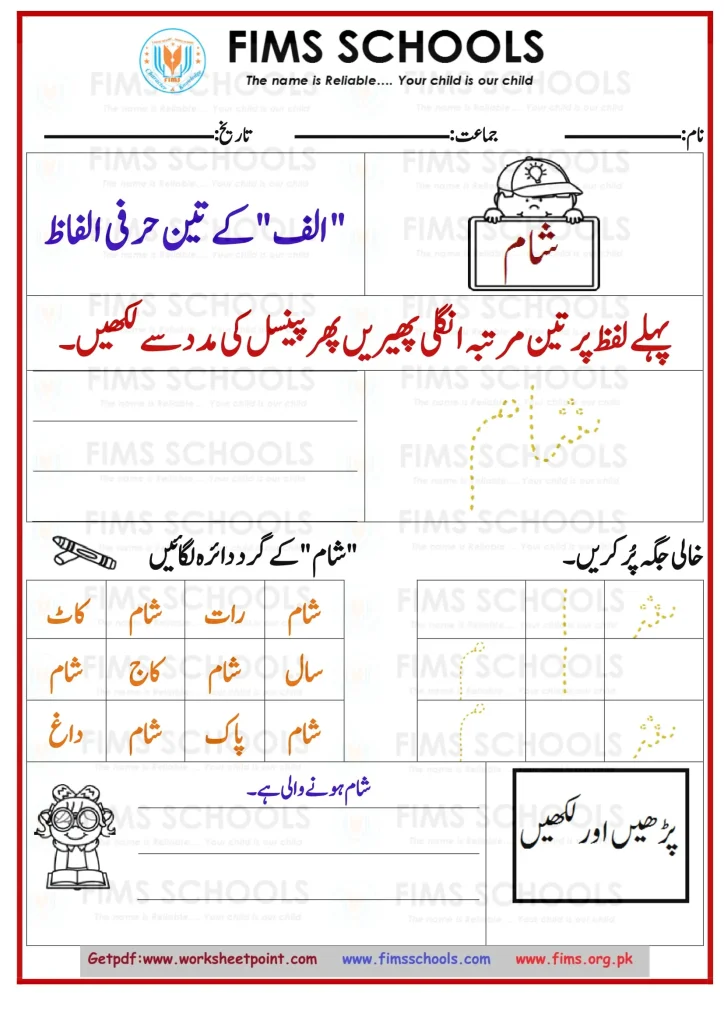 FIMS SCHOOLS
The name is Reliable.... Your child is our child
نام: جماعت: تاریخ:
شام
"الف" کے تین حرفی الفاظ
پہلے لفظ پر تین مرتبہ انگلی پھیریں پھر پینسل کی مدد سے لکھیں۔
شام
خالی جگہ پُر کریں۔
شـ ا
ا م
شـ م
"شام" کے گرد دائرہ لگائیں
شام رات شام کاٹ
سال شام کاج شام
شام پاک شام داغ
پڑھیں اور لکھیں
شام ہونے والی ہے۔
Getpdf:www.worksheetpoint.com www.fimsschools.com www.fims.org.pk